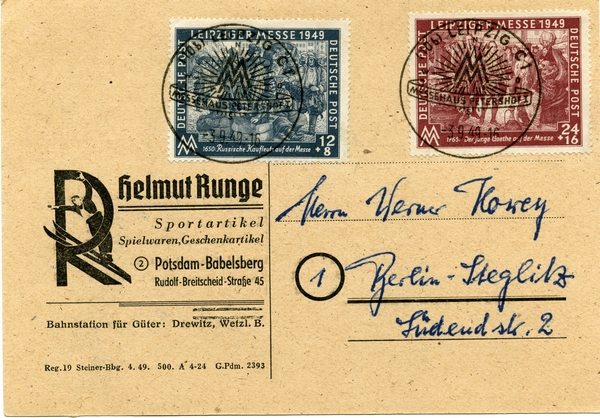 LEIPZIGER MESSE 1949
DEUTSCHE POST
DEUTSCHE POST
12
+ 8
1650 · Russische Kaufleute auf der Messe
LEIPZIG C1
MESSEHAUS PETERSHOF
LEIPZIGER MESSE 1949
DEUTSCHE POST
DEUTSCHE POST
24
+ 16
1765 · Der junge Goethe auf der Messe
LEIPZIG C1
MESSEHAUS PETERSHOF
-3.9.49.16
Helmut Runge
Sportartikel
Spielwaren, Geschenkartikel
② Potsdam-Babelsberg
Rudolf-Breitscheid-Straße 45
Bahnstation für Güter: Drewitz, Wetzl. B.
Reg. 19 Steiner-Bbg. 4. 49. 500. A 4-24 G.Pdm. 2393
Herrn Werner
1 Berlin-Steglitz
Südendstr. 2